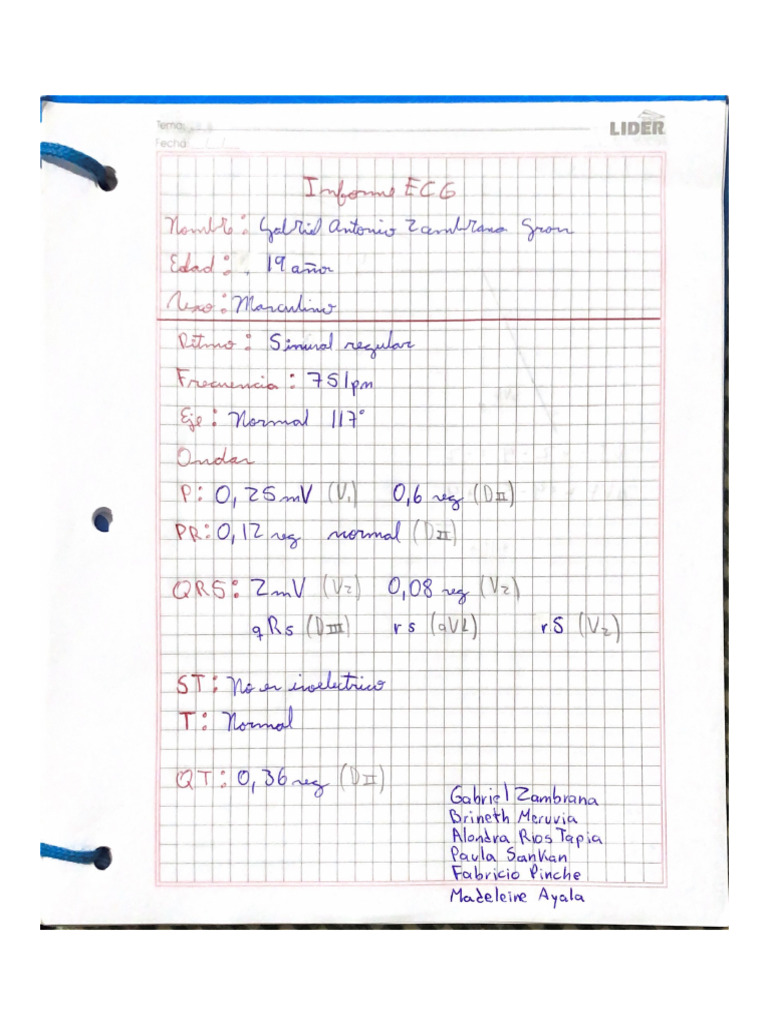 Tema:
LIDER
Fecha: / /
Informe ECG
Nombre: Gabriel Antonio Zambrana Gron
Edad: 19 años
Sexo: Masculino
Ritmo: Sinusal regular
Frecuencia: 75 lpm
Eje: Normal 117°
Ondas
P: 0,25 mV (V1) 0,6 seg (DII)
PR: 0,12 seg normal (DII)
QRS: 2 mV (V2) 0,08 seg (V2)
qRs (DIII) rs (aVL) rS (V2)
ST: No es isoelectrico
T: Normal
QT: 0,36 seg (DII)
Gabriel Zambrana
Brineth Meruvia
Alondra Rios Tapia
Paula Sankan
Fabricio Pinche
Madeleine Ayala